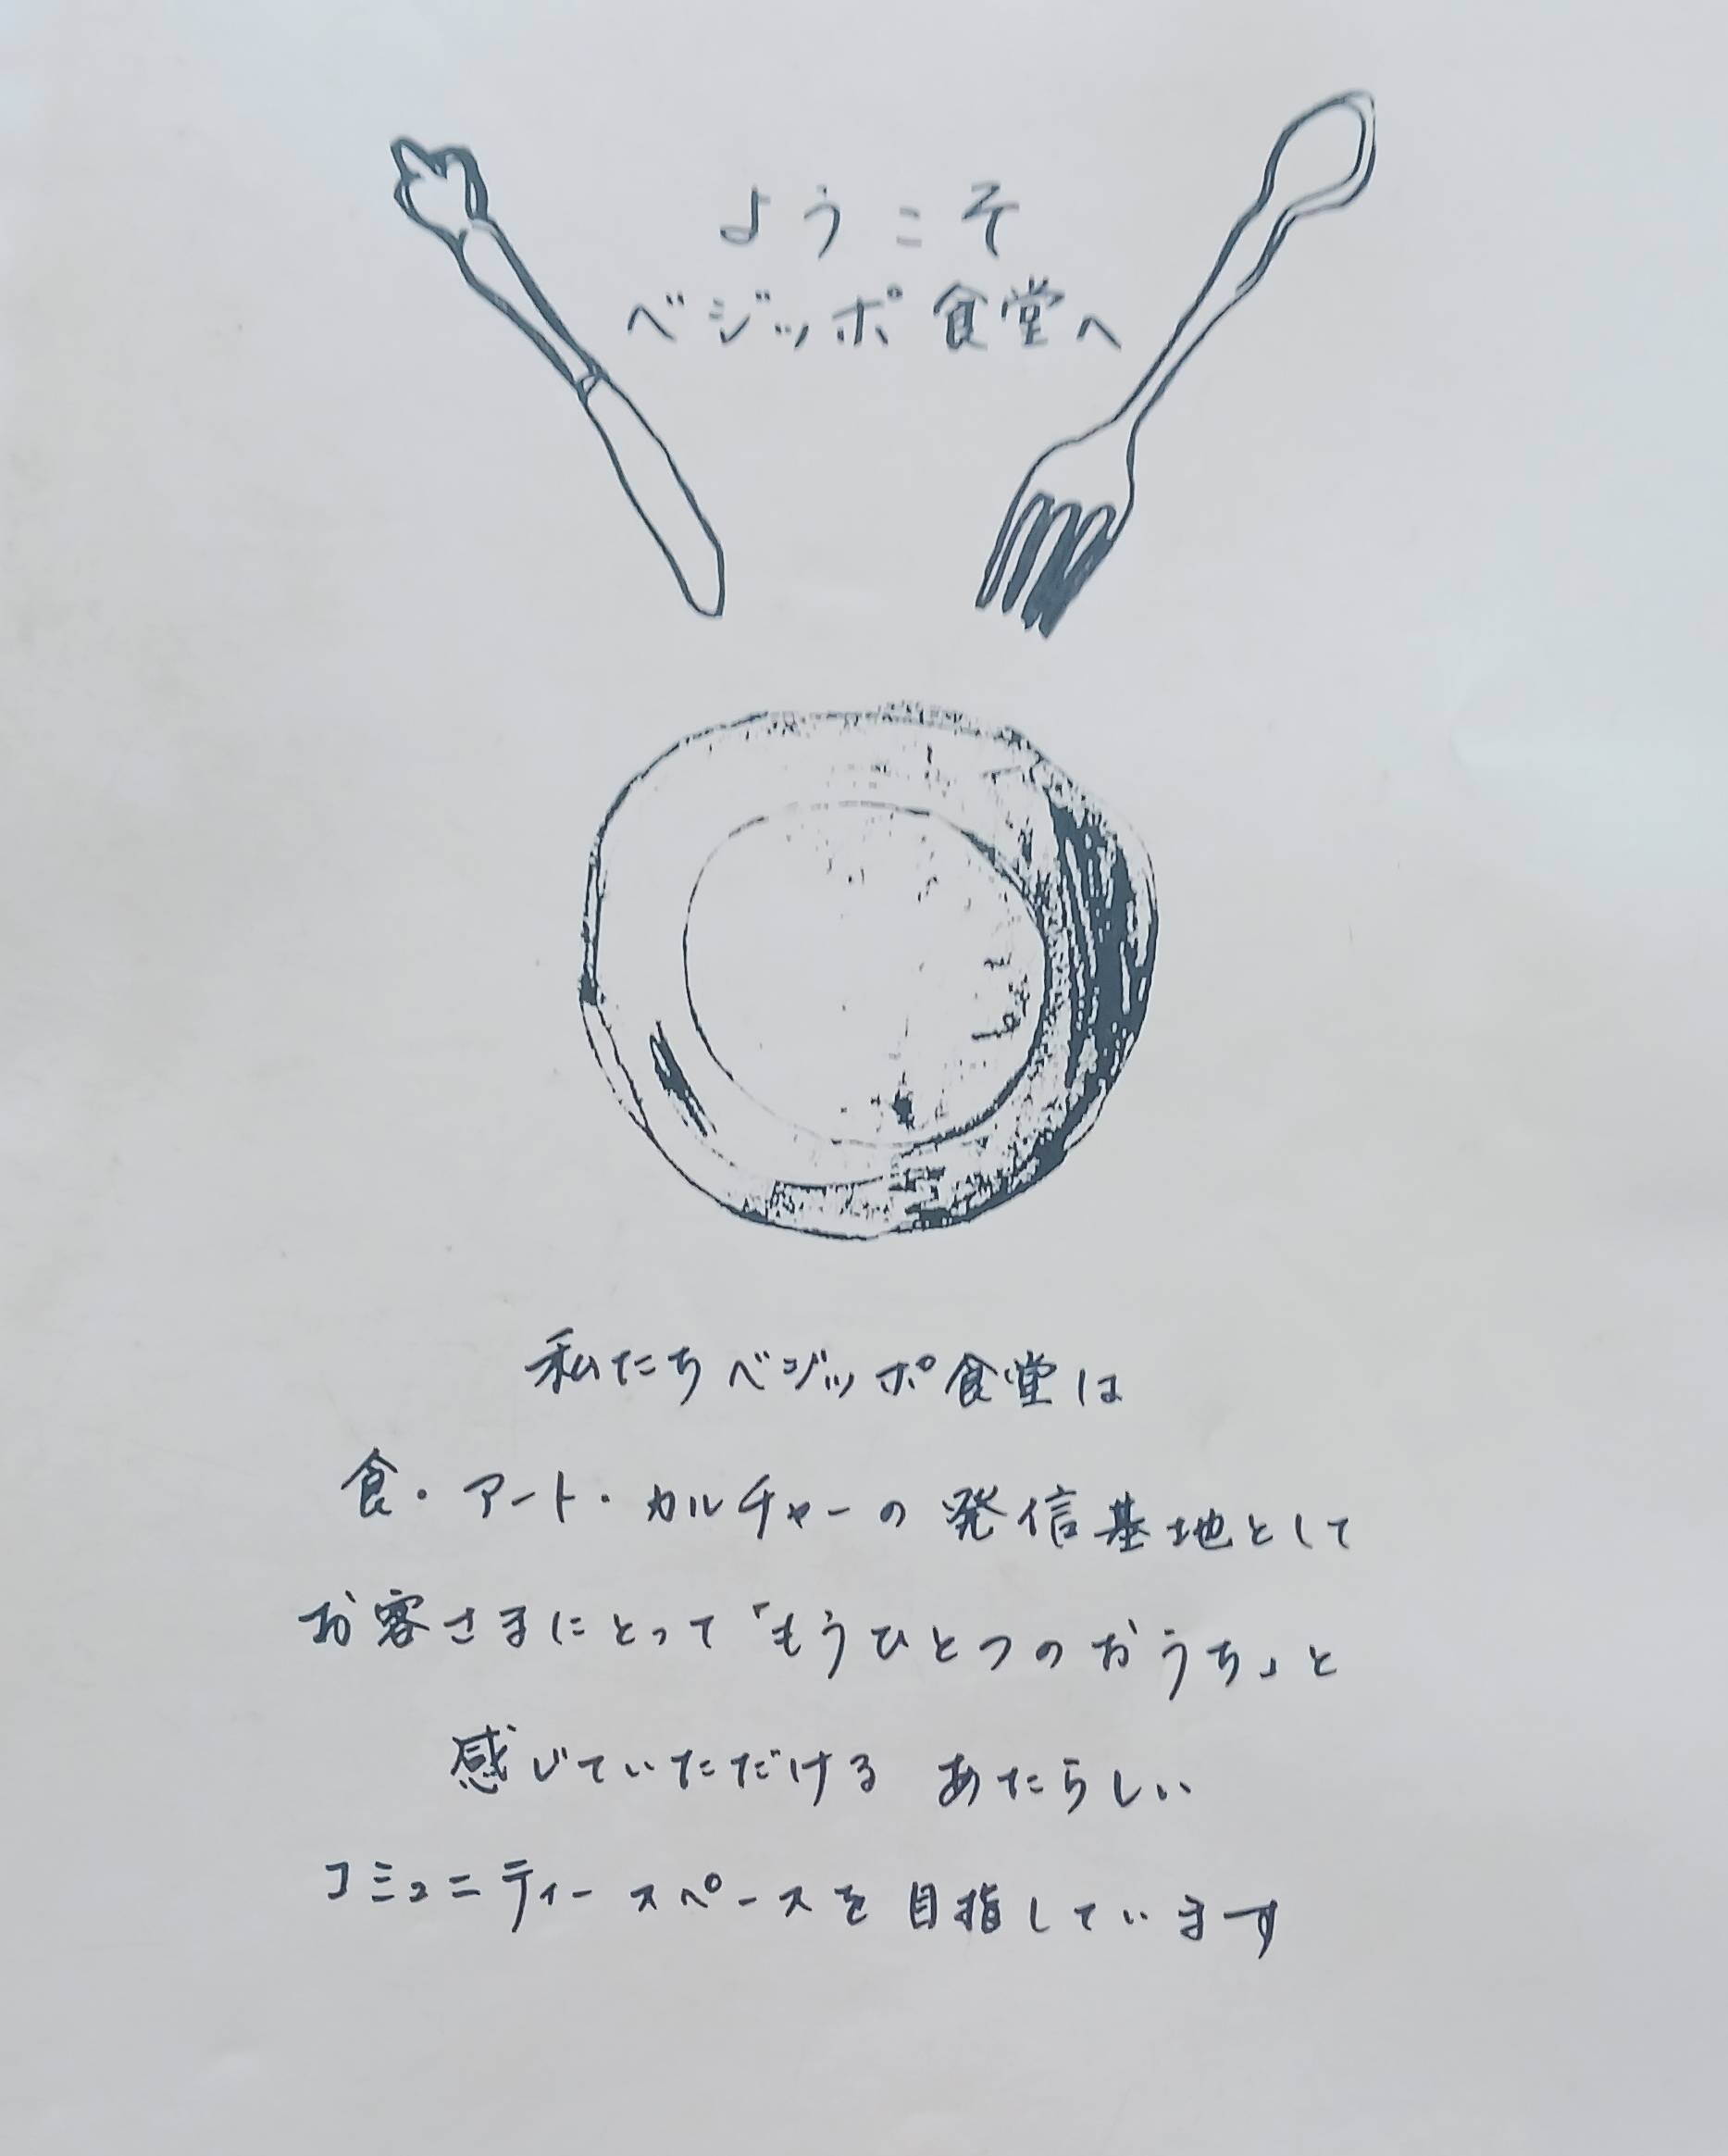 ようこそ
ベジッポ食堂へ
私たちベジッポ食堂は
食・アート・カルチャーの発信基地として
お客さまにとって「もうひとつのおうち」と
感じていただける あたらしい
コミュニティースペースを目指しています